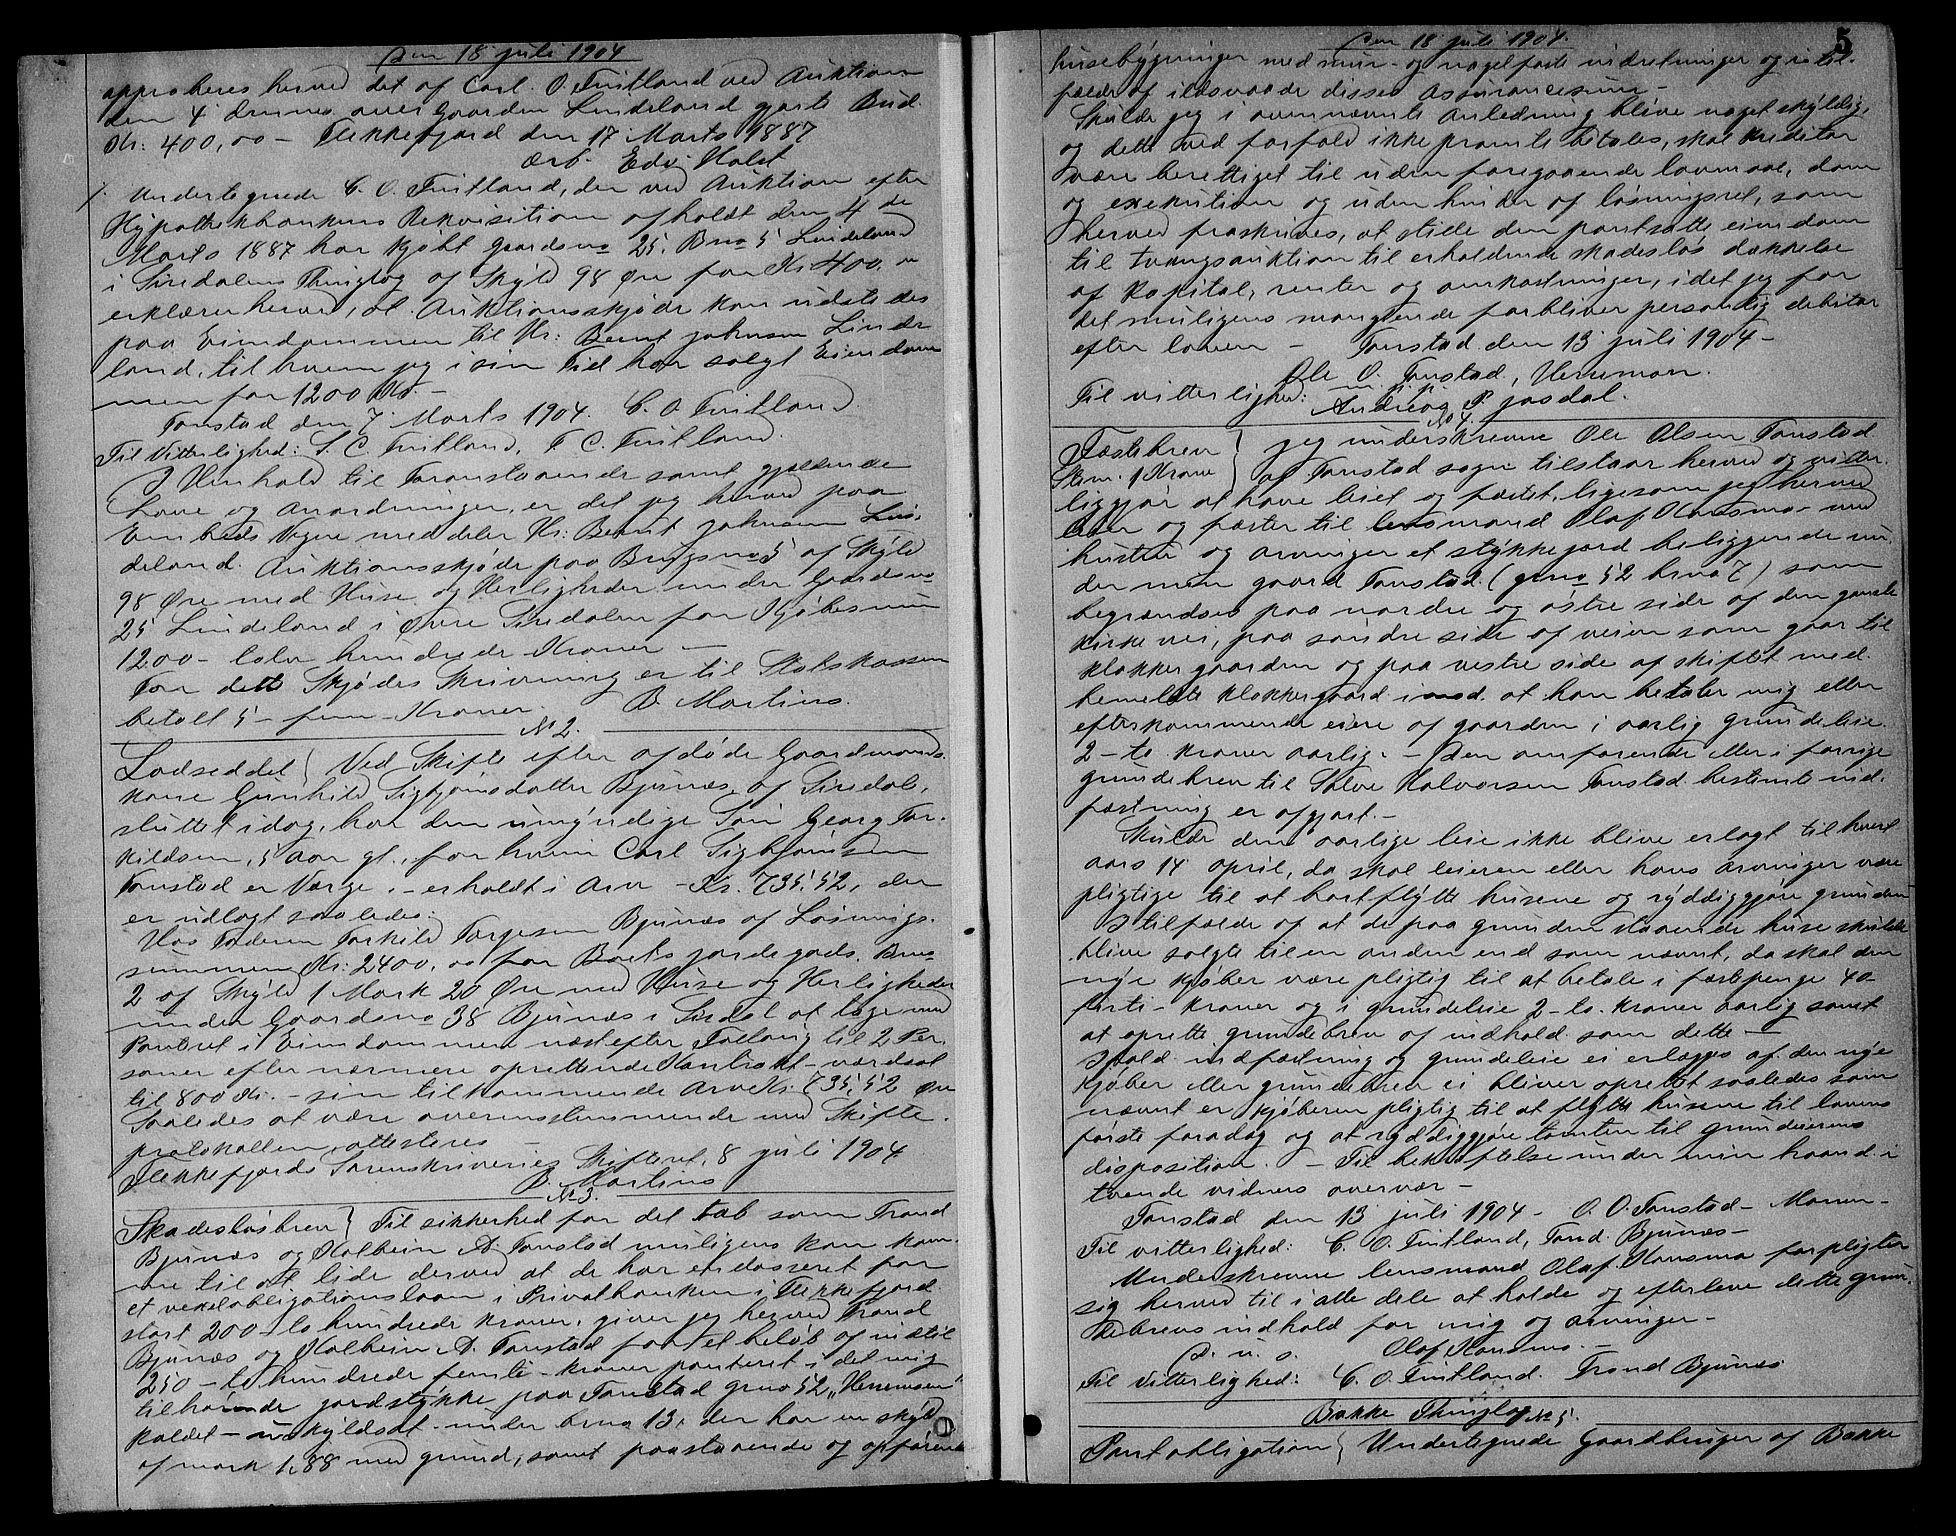 Den 18 juli 1904
approberes herved det af Carl O. Tveitland ved Auktion
den 4 dennes over Gaarden Lindeland gjorte Bud
Kr: 400,00 – Flekkefjord den 17 Marts 1887
ærb. Edv. Holst
Undertegnede C. O. Tveitland, der ved Auktion efter
Hypothekbankens Rekvisition afholdt den 4 de
Marts 1887 har kjøbt gaardsno 25. Bno 5 Lindeland
i Siredalens Thinglag af Skyld 98 Øre for Kr 400.
erklærer herved, at Auktionsskjøde kan udstedes
paa Eiendommen til Hr: Bernt Johnsen Linde
land, til hvem jeg i sin Tid har solgt Eiendom
men for 1200 Kr. –
Tonstad den 7 Marts 1904. C. O. Tveitland.
Til Vitterlighed: S. C. Tveitland, T. C. Tveitland.
I Henhold til Foranstaaende samt gjældende
Love og Anordninger, er det jeg herved paa
Embeds Vegne meddeler Hr: Bernt Johnsen Lin-
deland. Auktionsskjøde paa Brugsno 5 af Skyld
98 Øre med Huse og Herligheder under Gaardsno
25 Lindeland i Øvre Siredalen for Kjøbesum
1200 – tolv hundrede Kroner –
For dette Skjødes Skrivning er til Statskassen
betalt 5 – fem – Kroner. B. Martins.
No 2.
Lodseddel } Ved Skifte efter afdøde Gaardmands
kone Gunhild Sigbjørnsdatter Bjunes af Siredal,
sluttet idag, har den umyndige Søn Georg Tor-
kildsen, 5 aar gl., for hvem Carl Sigbjørnsen
Tonstad er Værge. – erholdt i Arv – Kr. 735,52, der
er udlagt saaledes:
Hos Faderen Torkild Torgesen Bjunes af Løsnings-
summen Kr: 2400,00 for Boets jordegods. Bno
2 af Skyld 1 Mark 20 Øre med Huse og Herligheder
under Gaardsno 38 Bjunes i Siredal at tage med
Panteret i Eiendommen næstefter Føllaug til 2 Per-
soner efter nærmere oprettende Kontrakt – værdsat
til 800 Kr. – sin tilkommende Arv Kr. 735,52 Øre
Saaledes at være overensstemmende med Skifte-
protokollen, attesteres –
Flekkefjords Sorenskriveries Skifteret, 8 juli 1904
B. Martins
No 3.
Skadesløsbrev } Til sikkerhed for det tab som Trond
Bjunes og Kolbein A. Tonstad muligens kan kom-
me til at lide derved at de har endosseret for
et vekselobligationslaan i Privatbanken i Flekkefjord
stort 200 – to hundrede kroner, giver jeg herved Trond
Bjunes og Kolbein A. Tonstad for et beløb af indtil
250 – to hundrede femti – kroner panteret i det mig
tilhørende jordstykke paa Tonstad gno 52 „Herremoen“
kaldet – uskyldsat – under bno 13, der har en skyld
af mark 1,88 med grund, samt paastaaende og opførende

Den 18 juli 1904.
5
husebygninger med mur- og nagelfaste indretninger og i til-
fælde af ildsvaade disses assurancesum –
Skulde jeg i ovennævnte anledning blive noget skyldig,
og dette ved forfald ikke promte betales, skal kreditor
være berettiget til uden foregaaende lovmaal, dom
og exekution og uden hinder af løsningsret, som
herved fraskrives, at stille den pantsatte eiendom
til tvangsauktion til erholdende skadesløs dækkelse
af kapital, renter og omkostninger, idet jeg for
det muligens manglende forbliver personlig debitor
efter loven – Tonstad den 13 juli 1904 –
Ole O. Tonstad, Herremoen.
m. p. p.
Til vitterlighed: Andreas P. Josdal.
No 4.
Fæstebrev } Jeg underskrevne Ole Olsen Tonstad
Stem. 1 Krone } af Tonstad sogn tilstaar herved og vitter-
liggjør at have leiet og fæstet, ligesom jeg herved
leier og fæster til lensmand Olaf Hansmo med
hustru og arvinger et stykke jord beliggende un-
der min gaard Tonstad (gno 52 bno 7) som
begrændses paa nordre og østre side af den gamle
kirkevei, paa søndre side af veien som gaar til
klokkergaarden og paa vestre side af skiftet med
bemeldte klokkergaard imod at han betaler mig eller
efterkommende eiere af gaarden i aarlig grundeleie
2 – to kroner aarlig. – Den omførende eller i forrige
grundebrev til Salve Halvorsen Tonstad bestemte ind-
fæstning er afgjort. –
Skulde den aarlige leie ikke blive erlagt til hvert
aars 14 april, da skal leieren eller hans arvinger være
pligtige til at bortflytte husene og ryddiggjøre grunden
I tilfælde af at de paa grunden staaende huse skulde
blive solgte til en anden end som nævnt, da skal den
nye kjøber være pligtig til at betale i fæstepenge 40 –
førti – kroner og i grundeleie 2 – to – kroner aarlig samt
at oprette grundebrev af indhold som dette –
Ifald indfæstning og grundeleie ei erlægges af den nye
kjøber eller grundebrev ei bliver oprettet saaledes som
nævnt er kjøberen pligtig til at flytte husene til lovens
første faradag og at ryddiggjøre tomten til grundeierens
disposition. – Til bekræftelse under min haand i
tvende vidners overvær –
Tonstad den 13 juli 1904 – O. O. Tonstad – Monen –
Til vitterlighed: C. O. Tveitland, Trond Bjunes –
Underskrevne lensmand Olaf Hansmo forpligter
sig herved til i alle dele at holde og efterleve dette grun-
debrevs indhold for mig og arvinger –
D. u. s. Olaf Hansmo –
Til Vitterlighed: C. O. Tveitland. Trond Bjunes
Bakke Thinglag No 5.
Pantobligation } Undertegnede Gaardbruger af Bakke